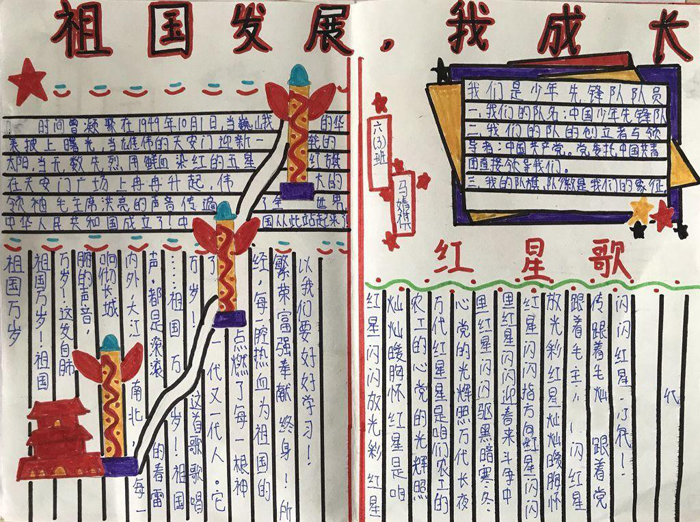 祖国发展，我成长
时间曾颖歌在1949年10月1日，当巍山我的华
表披上曙光，当雄伟的天安门迎新一我的
太阳，当无数先烈用鲜血染红的五星红旗
在天安门广场上冉冉升起，伟大的
领袖毛主席洪亮的声音传遍了全世界
中华人民共和国成立了！中国从此站起来
以我们要好好学习！
繁荣富强奉献终身！所
经，每一腔热血为祖国的
点燃了每一根神
了一代又一代人。它
万岁！这首歌歌唱
…祖国万岁！祖国
声，都是滚滚的春雷
内外，大江南北，每一
响彻长城
丽的声音，
万岁！这发自肺
祖国万岁！祖国
祖国万岁
六(3)班
马嫣祺
我们是少年先锋队队员
一、我们的队名：中国少年先锋队
二、我们的队的创立者与领
导者：中国共产党。党委托中国共青
团直接领导我们。
三、我的队旗、队徽是我们的象征
红星歌
代
闪闪红星，
传跟着毛灿，跟着党
跟着毛主闪红星
放光彩红星灿灿暖胸怀
红星闪闪指方向红星闪闪
里红星闪闪迎着来斗争中
里红星闪闪驱黑暗寒冬
心党的光辉照万代长夜
万代红星是咱们农工的
农工的心党的光辉照
灿灿暖胸怀红星是咱
红星闪闪放光彩红星